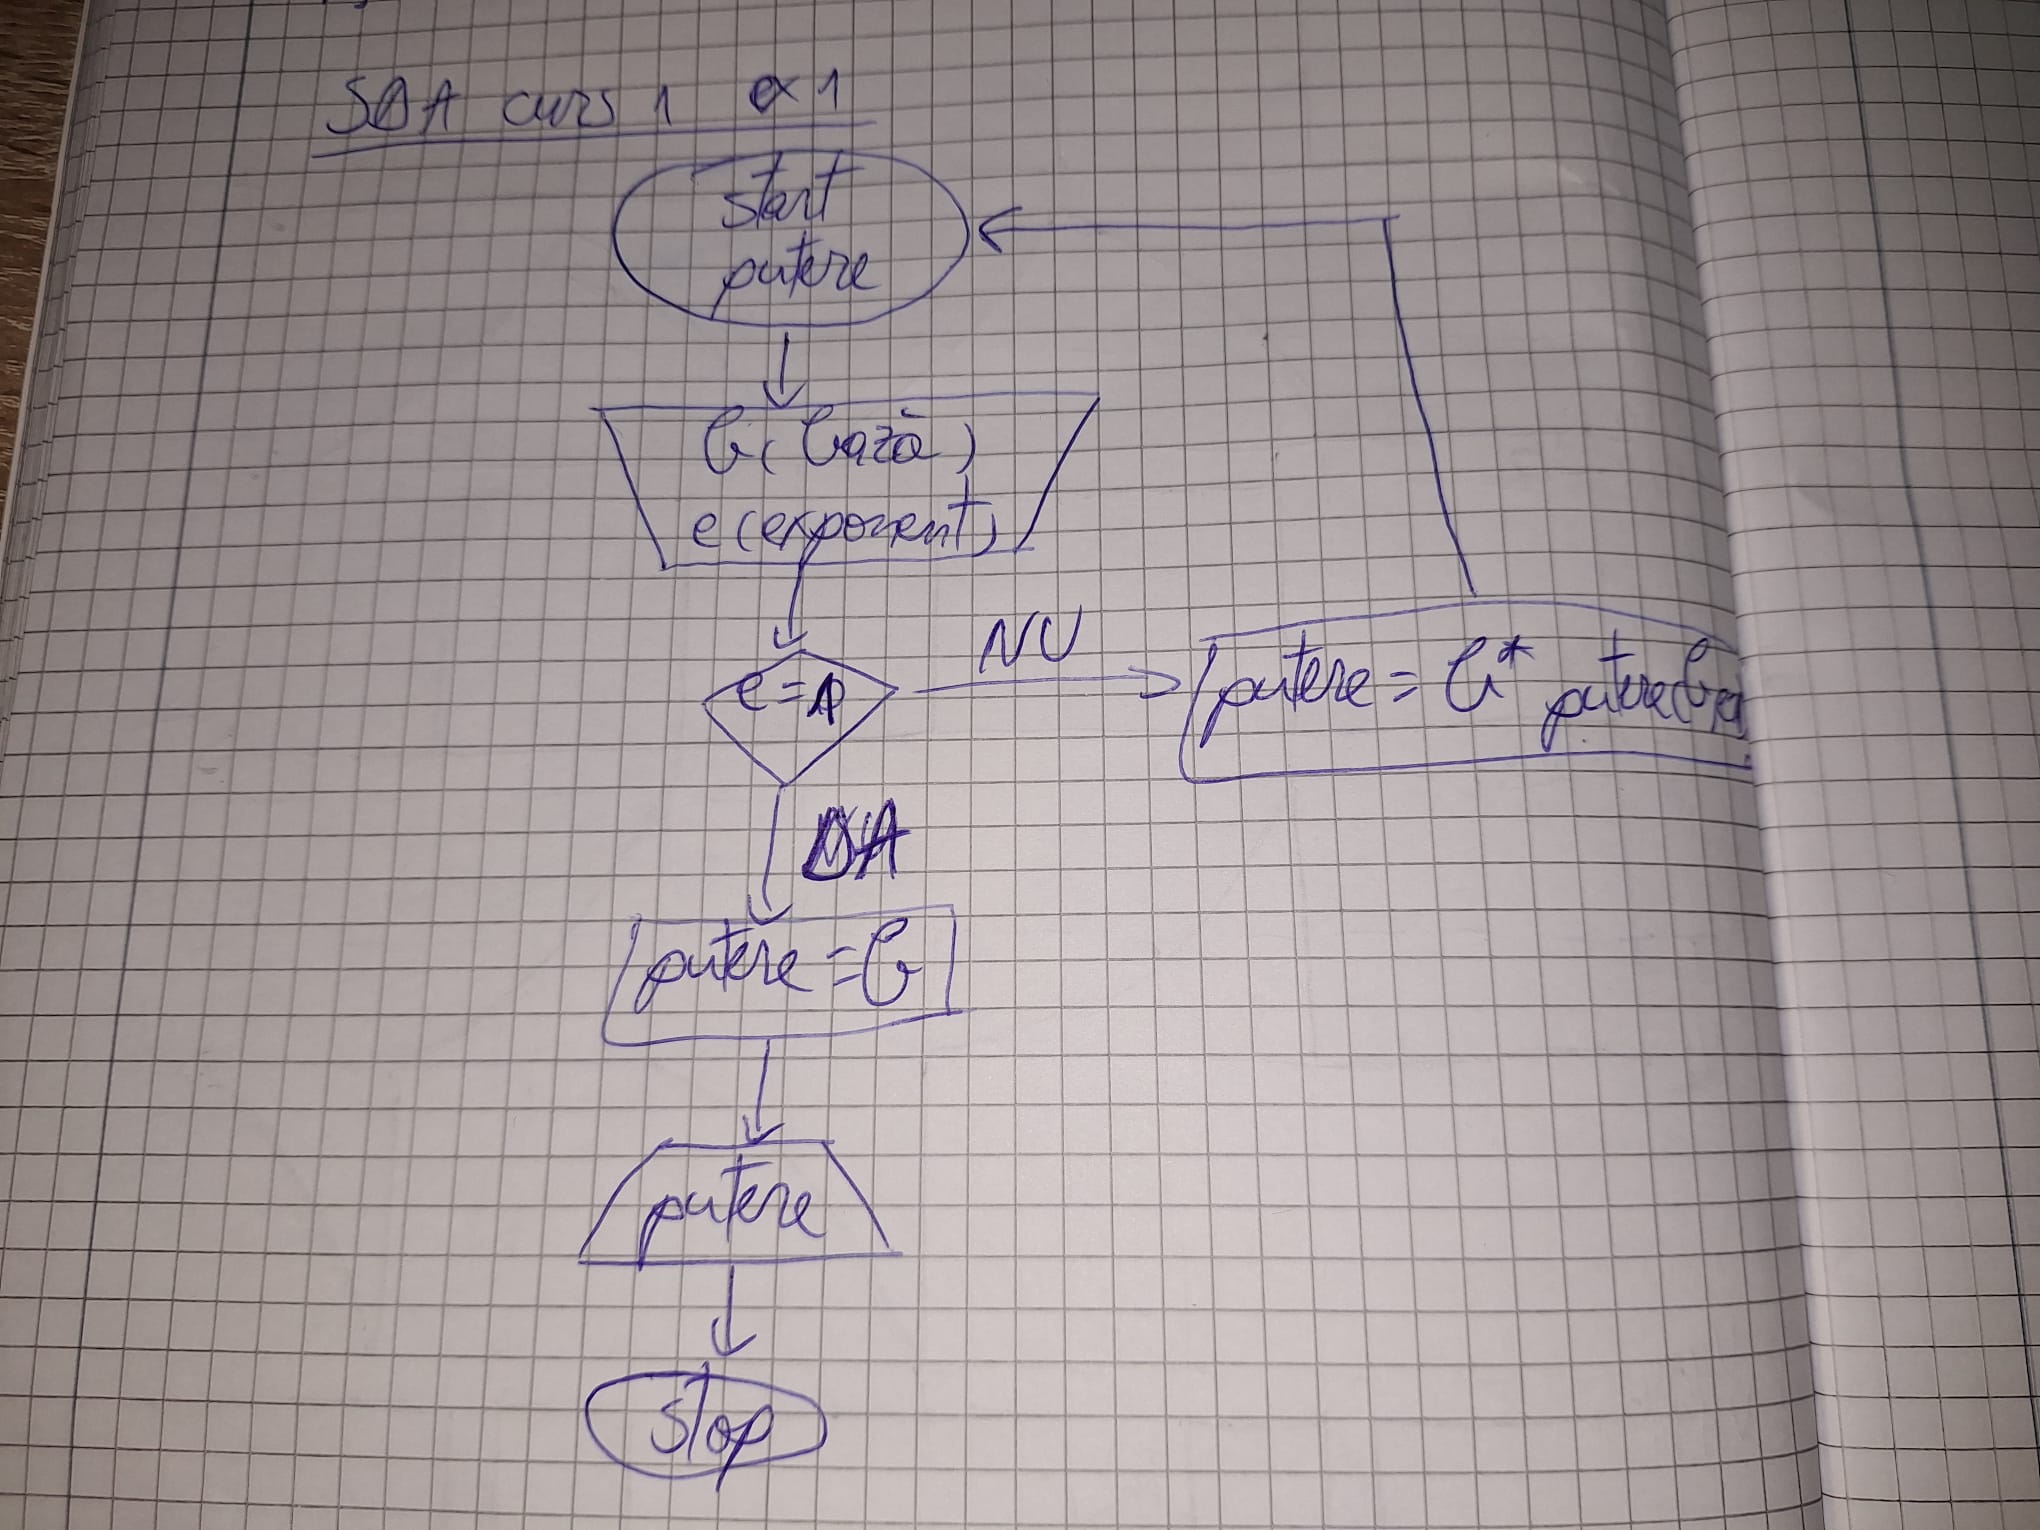 SDA curs 1 ex 1
start
putere
b (bază)
e (exponent)
e = 1
NU
putere = b * putere(b,e
DA
putere = b
putere
stop